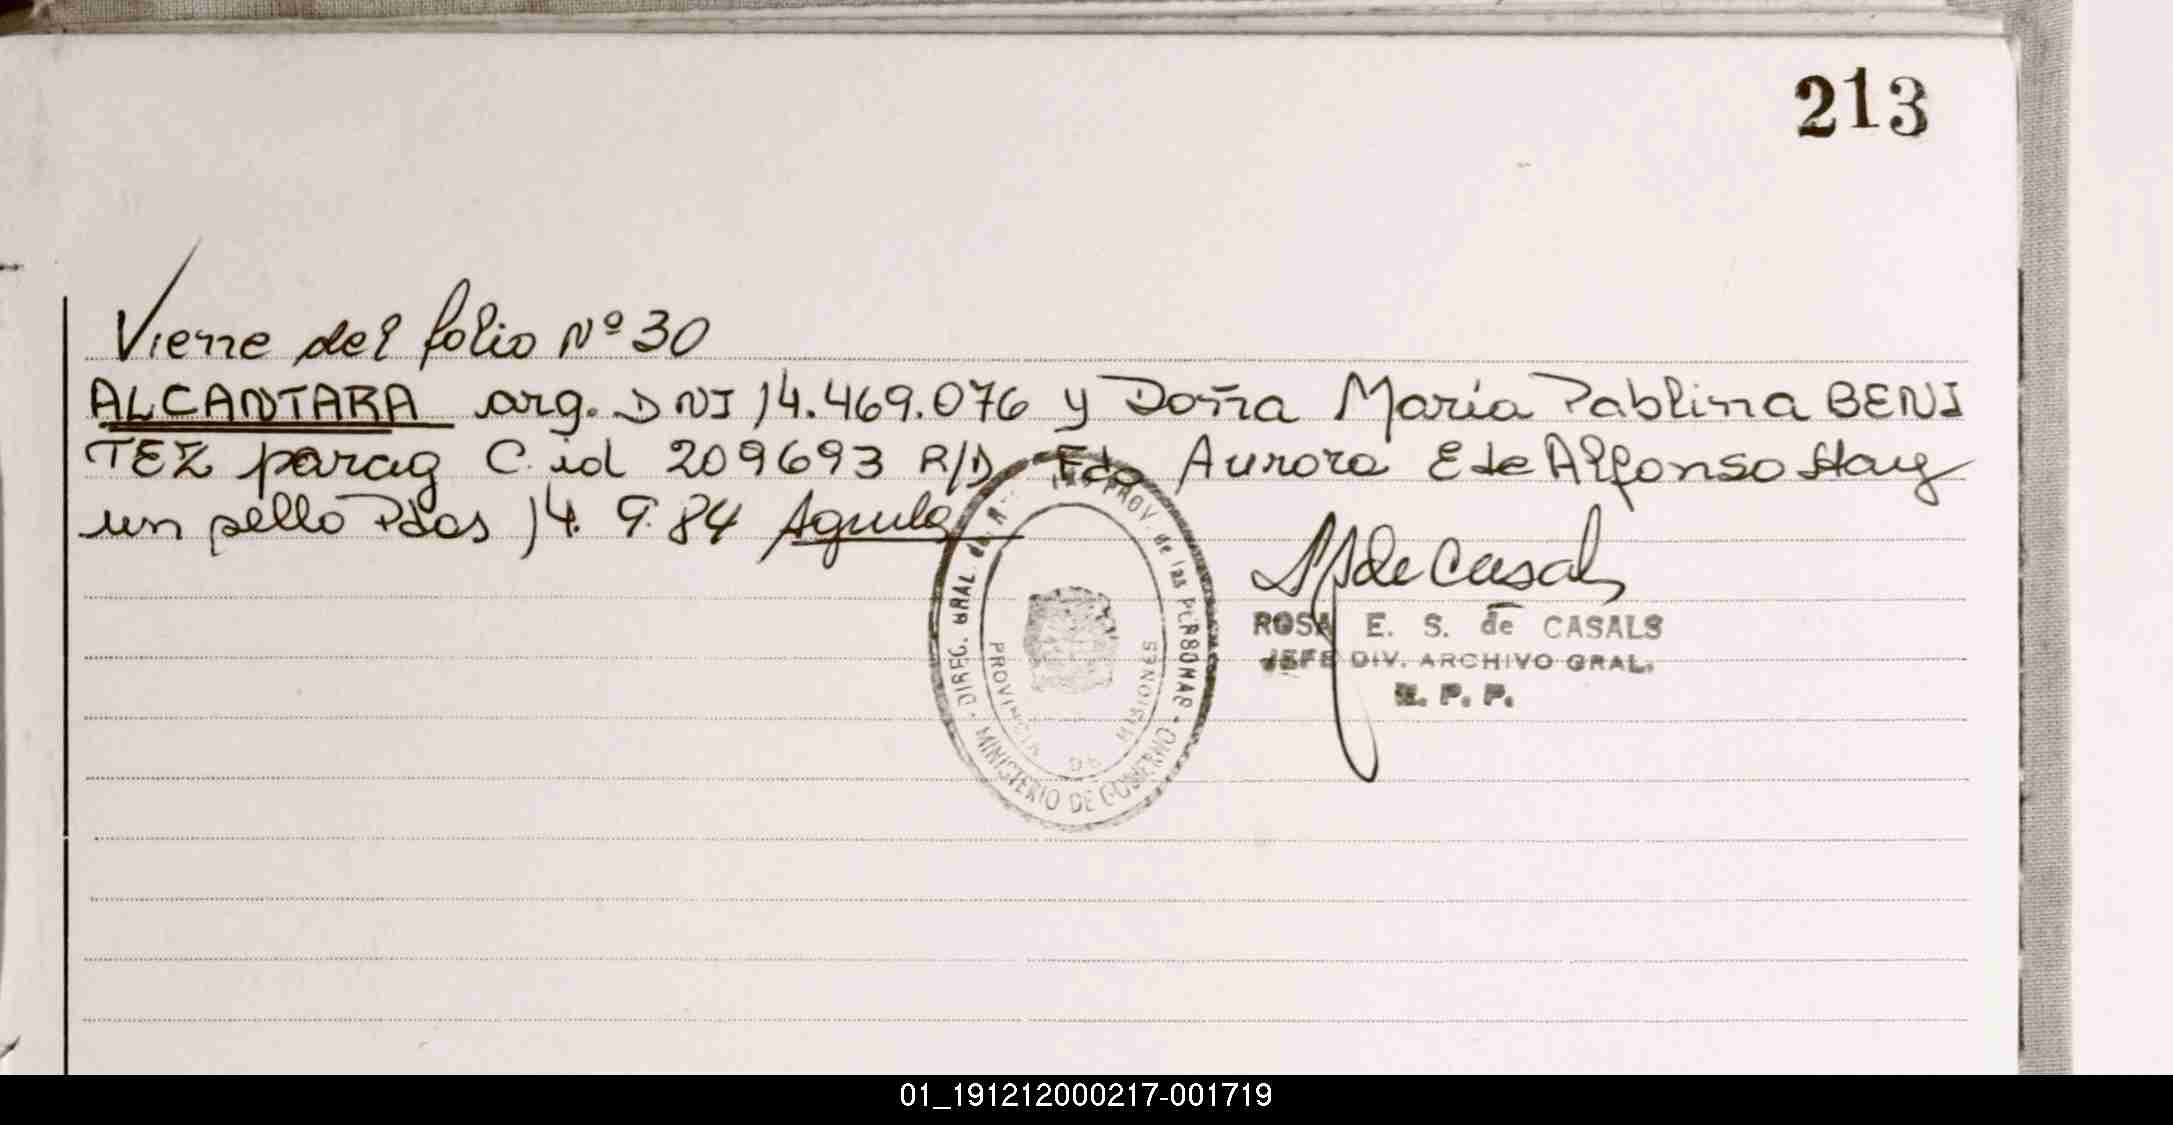 213
Viene del folio Nº 30
ALCANTARA arg. DNI 14.469.076 y Doña María Pablina BENI
TEZ parag C. id 209693 R/D Fdo Aurora E de Alfonso Hay
un sello Pdas 14. 9. 84 Aguila
de Casals
ROSA E. S. de CASALS
JEFE DIV. ARCHIVO GRAL.
R. P. P.
DIREC. GRAL. de PROV. de las PERSONAS
MINISTERIO DE GOBIERNO
PROVINCIA DE MISIONES
01_191212000217-001719